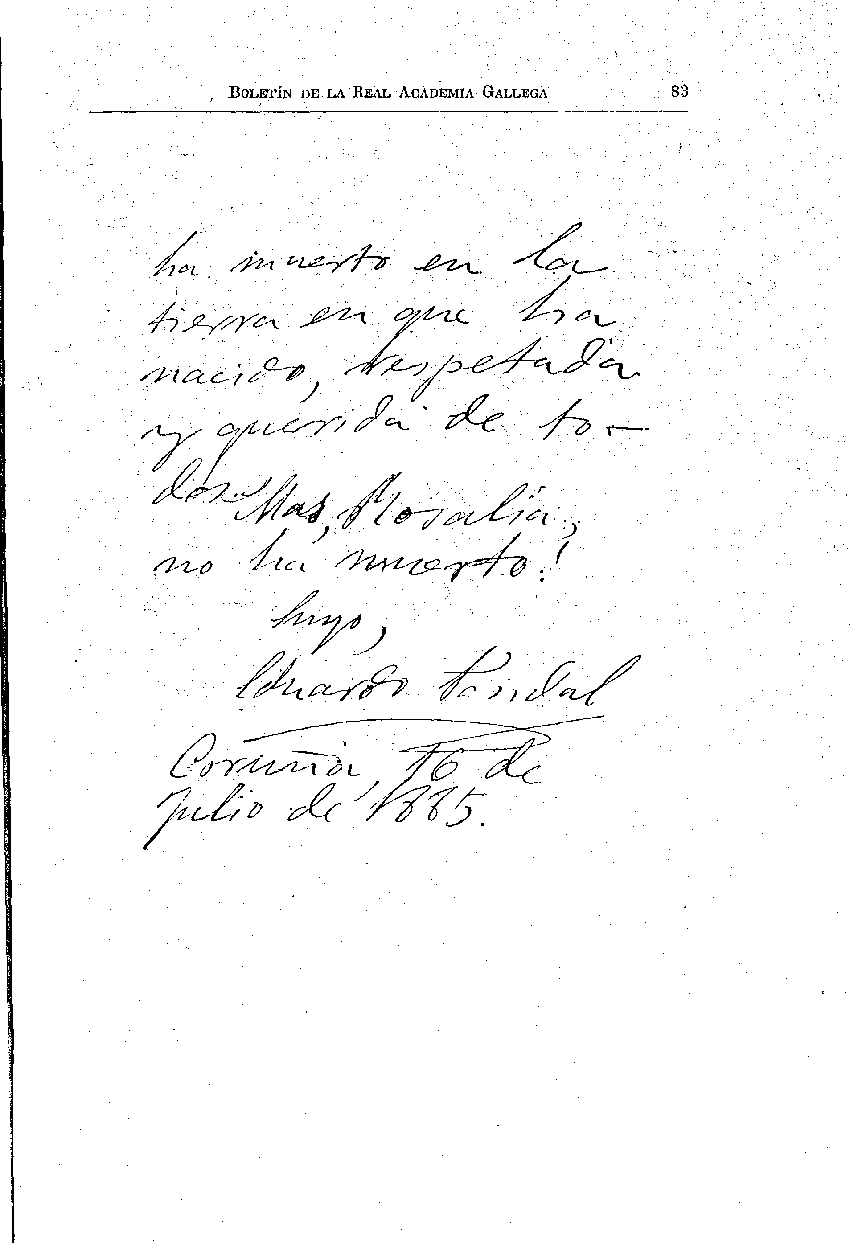 BOLETÍN DE LA REAL ACADEMIA GALLEGA 83
ha muerto en la
tierra en que ha
nacido, respetada
y querida de to-
dos. Mas, Rosalía,
no ha muerto!
Suyo,
Eduardo Pondal
Coruña, 16 de
Julio de 1885.